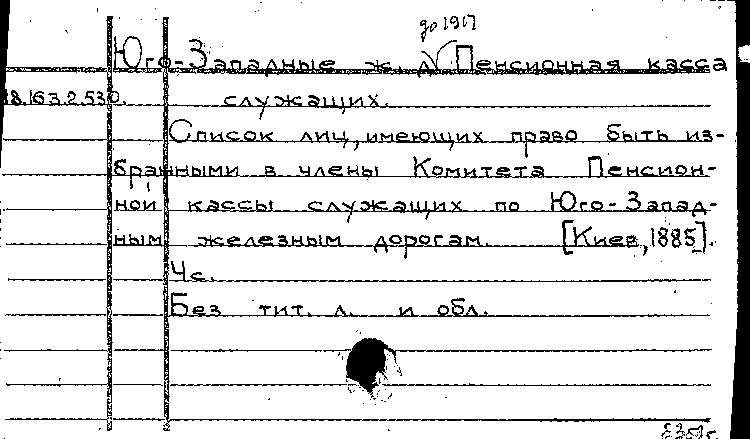 до 1917
Юго-Западные ж. д. Пенсионная касса
18.163.2.530. служащих.
Список лиц, имеющих право быть из-
бранными в члены Комитета Пенсион-
ной кассы служащих по Юго-Запад-
ным железным дорогам. [Киев, 1885].
4с.
Без тит. л. и обл.